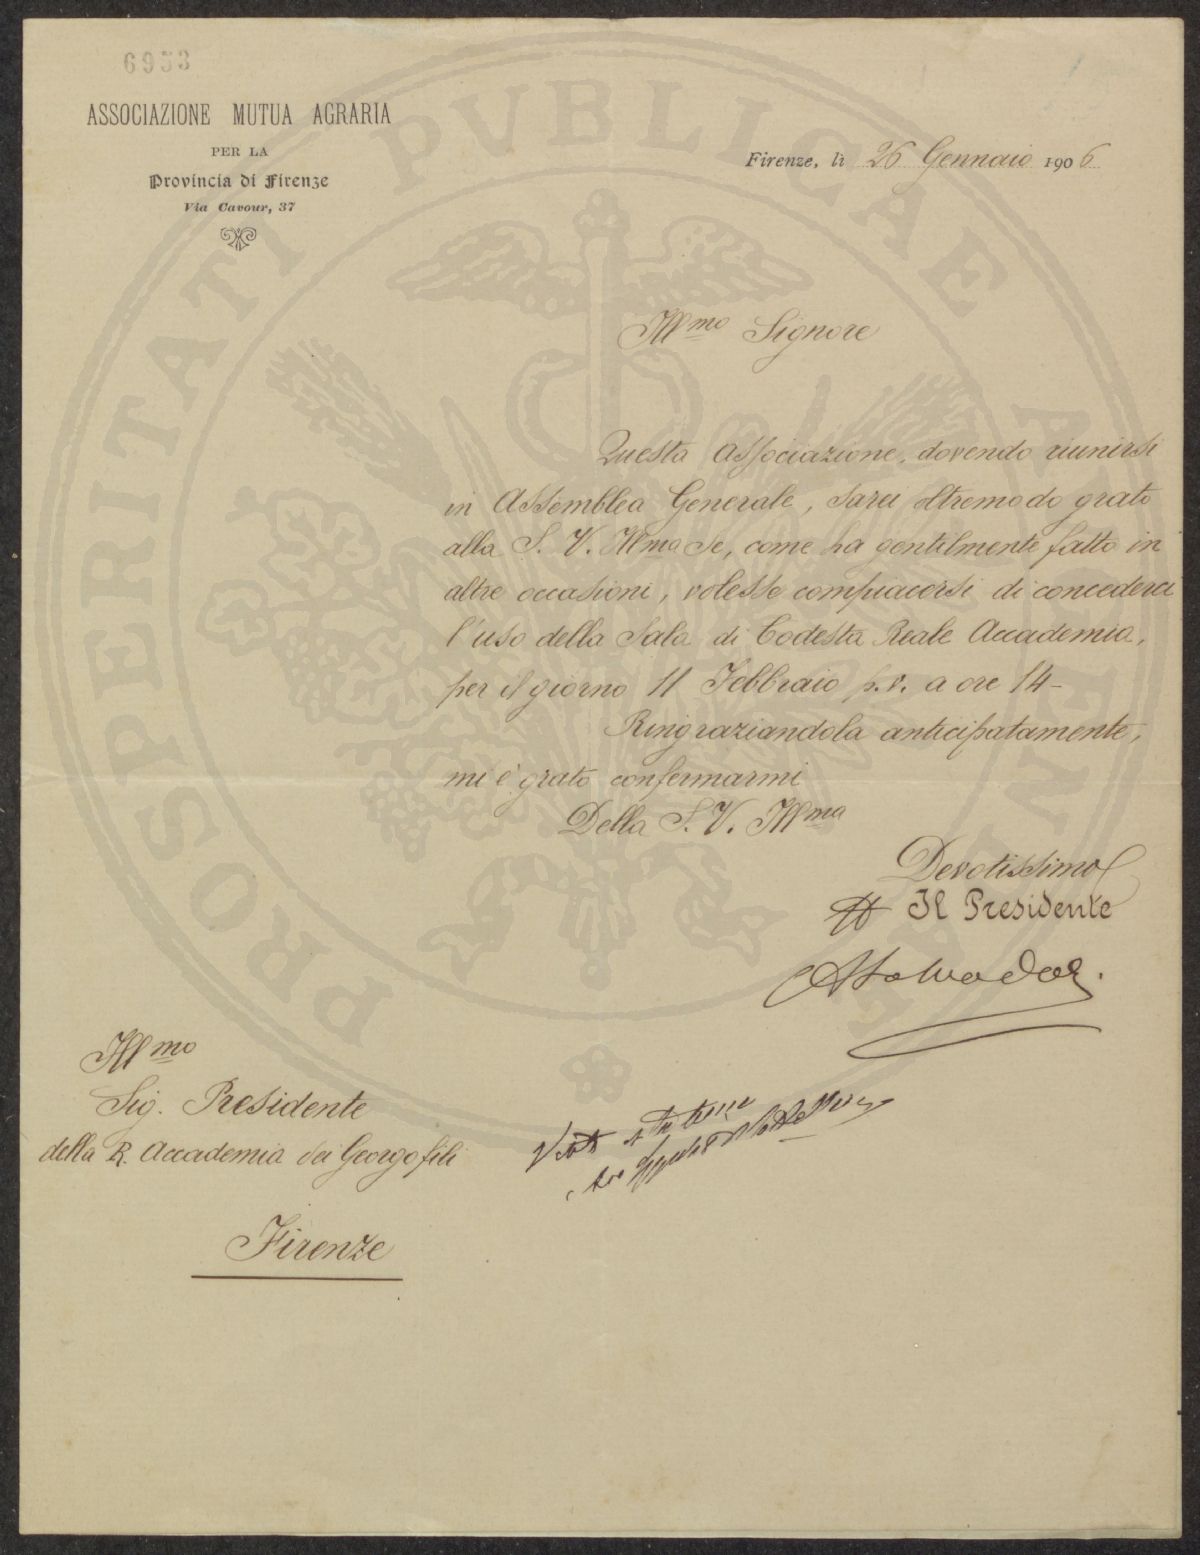 6953
ASSOCIAZIONE MUTUA AGRARIA
PER LA
Provincia di Firenze
Via Cavour, 37
Firenze, li 26 Gennaio 1906
PROSPERITATI PVBLICAE AVGENDAE
Illmo Signore
Questa Associazione, dovendo riunirsi
in Assemblea Generale, sarei oltremodo grato
alla S. V. Illma se, come ha gentilmente fatto in
altre occasioni, volesse compiacersi di concederci
l'uso della Sala di Codesta Reale Accademia,
per il giorno 11 Febbraio p.v. a ore 14-
Ringraziandola anticipatamente,
mi è grato confermarmi
Della S. V. Illma
Devotissimo
Il Presidente
Illmo
Sig. Presidente
della R. Accademia dei Georgofili
Firenze